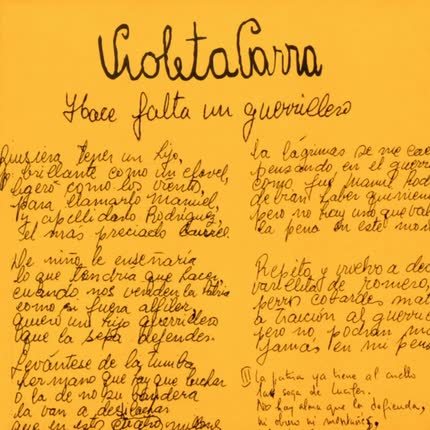 Violeta Parra
Hace falta un guerrillero
Quisiera tener un hijo,
brillante como un clavel,
ligero como los vientos,
para llamarlo Manuel,
y apellidarlo Rodríguez,
el más preciado laurel.
De niño le enseñaría
lo que tendría que hacer
cuando nos venden la Patria
como si fuera alfiler,
quiero un hijo guerrillero
que la sepa defender.
Levántese de la tumba,
hermano que hay que luchar
o la de no su bandera
la van a
que en esto
La lágrimas se me cae
pensando en el guerri
como fue Manuel Rod
debían haber quinien
pero no hay uno que val
la pena en este mo
Repito y vuelvo a dec
varillita de romero,
perros cobardes mat
a traición al guerri
pero no podrán ma
jamás en mi pens
La patria ya tiene al cuello
la soga de Lucifer.
No hay alma que la defienda,
ni obrero ni